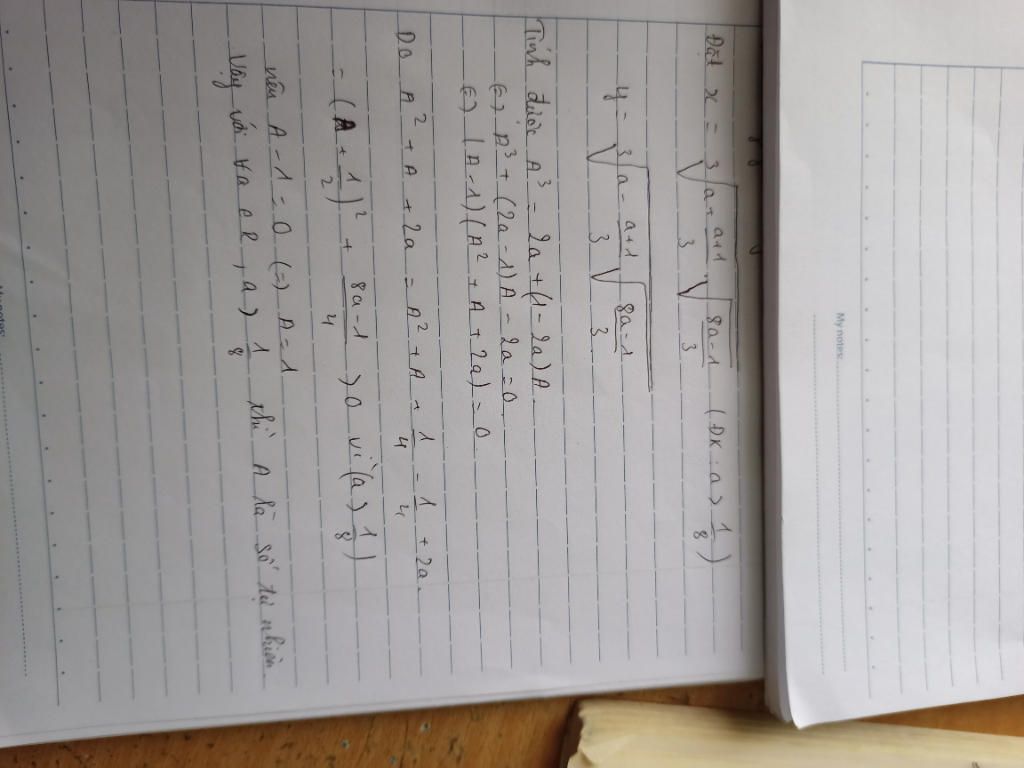 Đặt x = ∛(a + (a+1)/3 √((8a-1)/3)) (ĐK: a > 1/8)
y = ∛(a - (a+1)/3 √((8a-1)/3))
Tính được A³ = 2a + (1-2a)A
(=) A³ + (2a-1)A - 2a = 0
(=) (A-1)(A² + A + 2a) = 0
Do A² + A + 2a = A² + A + 1/4 - 1/4 + 2a
= (A + 1/2)² + (8a-1)/4 > 0 vì (a > 1/8)
nên A - 1 = 0 (=) A = 1
Vậy với ∀a e R, a > 1/8 thì A là số tự nhiên
My notes:
My notes: